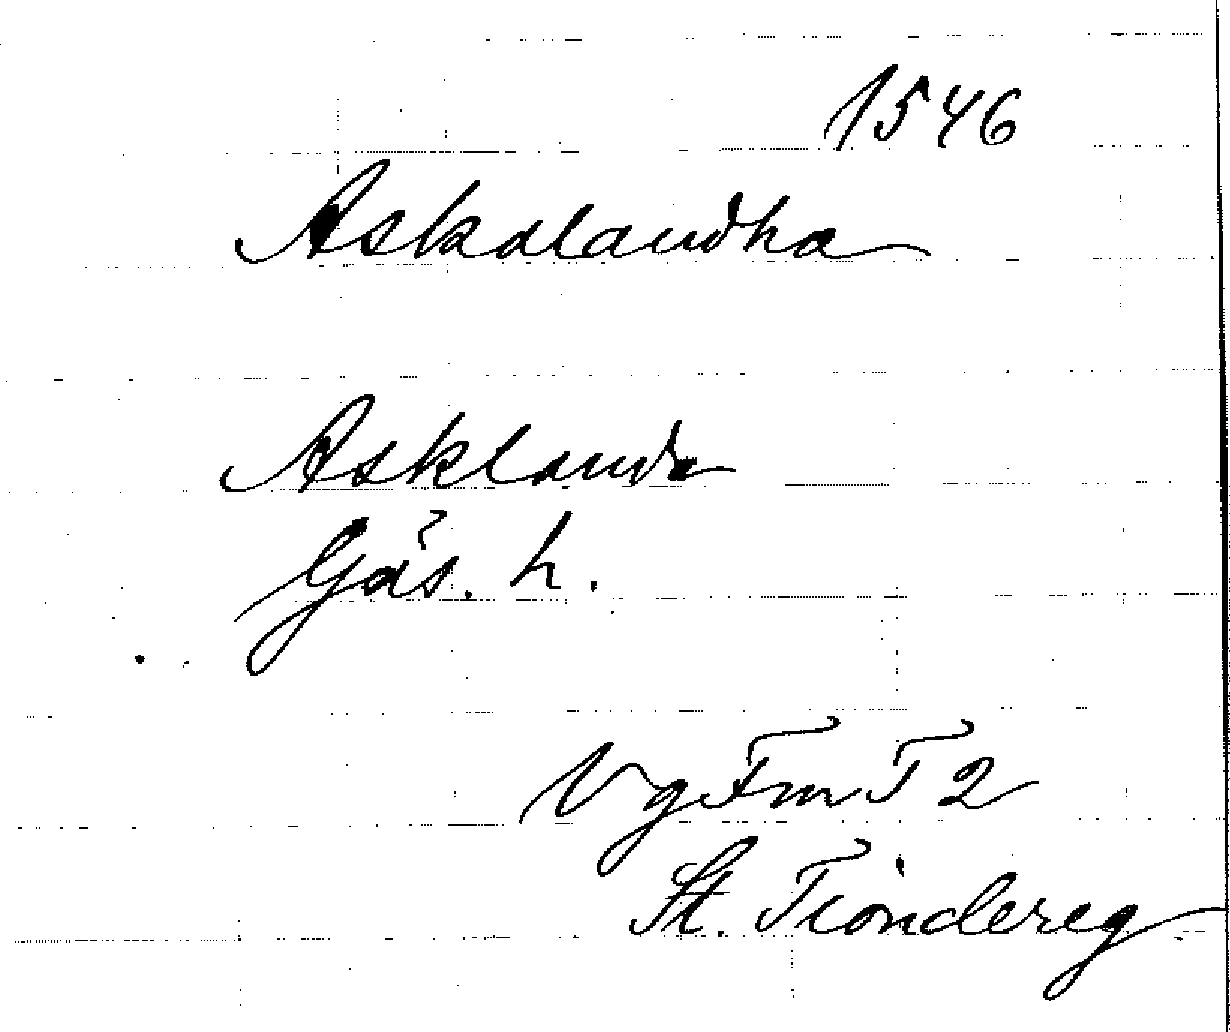 1546
Askalandha
Asklanda
Gäs. h.
VgFmT 2
St. Tiondereg